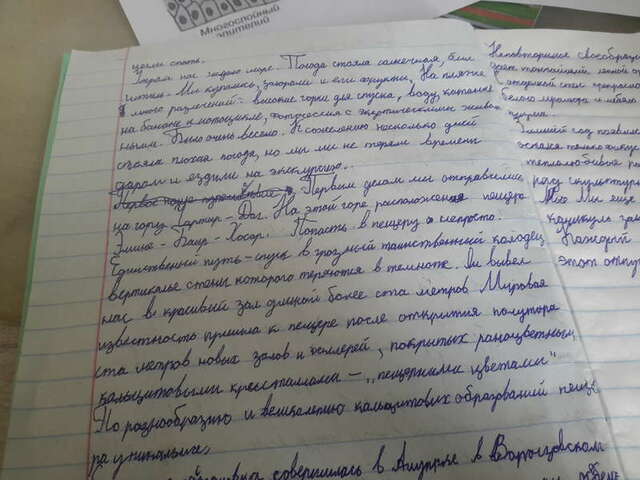 Многослойный
эпителий
цели спать.
Утром нас ждало море. Погода стояла солнечная, был
штиль. Мы купались, загорали и ели фрукты. На пляже
много развлечений: высокие горки для спуска, воду, катание
на банане и мотоцикле, фотосессия с экзотическими живот
ными. Было очень весело. К сожалению несколько дней
стояла плохая погода, но мы мы не теряли времени
даром и ездили на экскурсию.
Первым делом мы отправились
на гору Чартыр-Даг. На этой горе расположена пещера
Эмине-Баир-Хосар. Попасть в пещеру не просто.
Единственный путь-спуск в грозный таинственный колодец
вертикалье стены которого теряются в темноте. Он вывел
нас в красивый зал длиной более ста метров Мировая
известность пришла к пещере после открытия полутора
ста метров новых залов и галлерей, покрытых разноцветными,
кальцитовыми кристалами - „пещерными цветами"
По разнообразию и кальцитовых образований пеще
ра уникальна.
совершилась в Алупке в Воронцовском
Неповторимое своеобрази
в которой стен
белого мрамора и
Зимний сад
теплолюбивые ра
скульптур
Мы еще
каникулы за
Каждый
этот